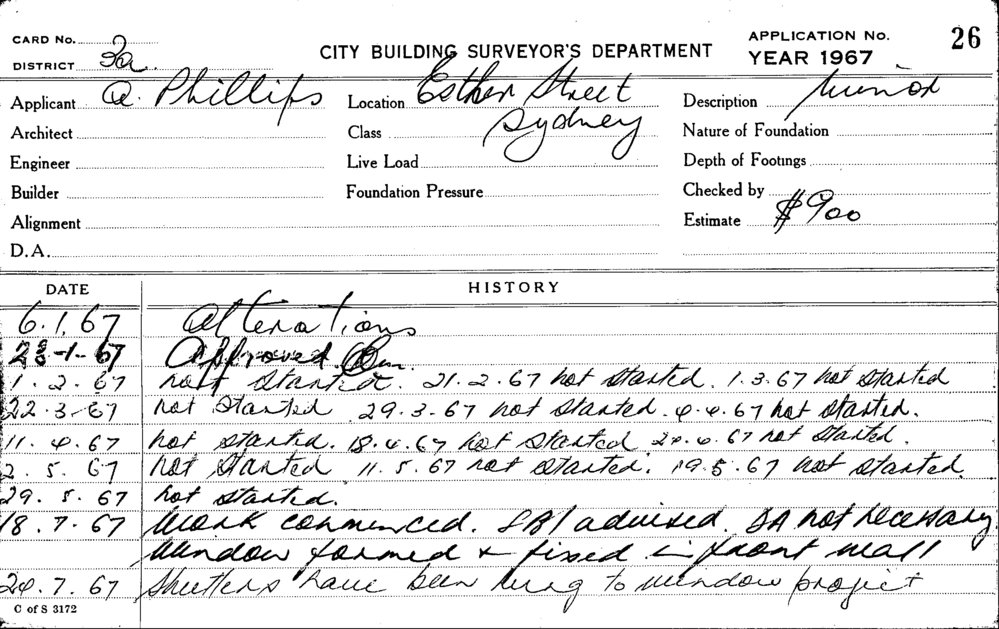 CARD No.
DISTRICT 3a.
CITY BUILDING SURVEYOR'S DEPARTMENT
APPLICATION No. 26
YEAR 1967
Applicant A. Phillips Location Esther Street Description Minor
Architect Class Sydney Nature of Foundation
Engineer Live Load Depth of Footings
Builder Foundation Pressure Checked by
Alignment Estimate $900
D.A.
DATE HISTORY
6.1.67 Alterations
23-1-67 Approved
1.2.67 not started. 21.2.67 not started. 1.3.67 not started
22.3.67 not started 29.3.67 not started. 4.4.67 not started.
11.4.67 not started. 18.4.67 not started 24.4.67 not started.
2.5.67 not started 11.5.67 not started. 19.5.67 not started
29.5.67 not started.
18.7.67 Work commenced. advised. DA not necessary
Window formed & fixed in front wall
24.7.67 Shutters have been hung to window project
C of S 3172